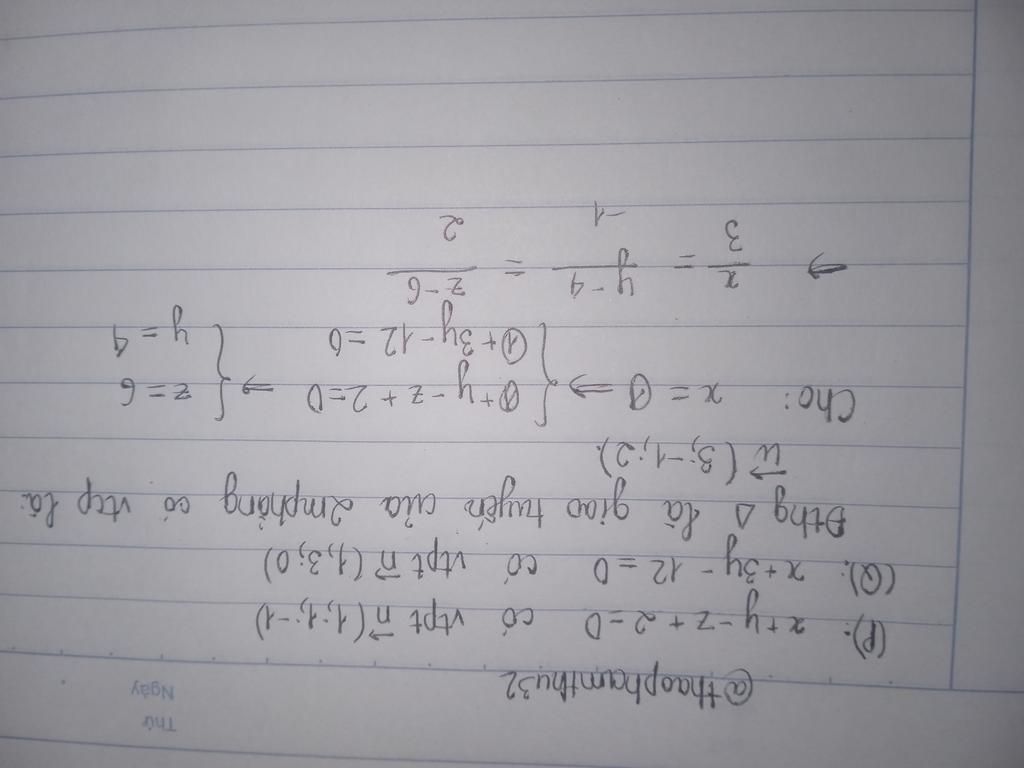 Thứ
Ngày
@thaophamthu32
(P): x+y-z+2=0 có vtpt n⃗(1;1;-1)
(Q): x+3y-12=0 có vtpt n⃗(1;3;0)
Đthg Δ là giao tuyến của 2mphẳng có vtcp là:
u⃗(3;-1;2).
Cho: x=0 ⇒ { 0+y-z+2=0 ⇒ { z=6
0+3y-12=0 y=4
⇒ x/3 = y-4/-1 = z-6/2